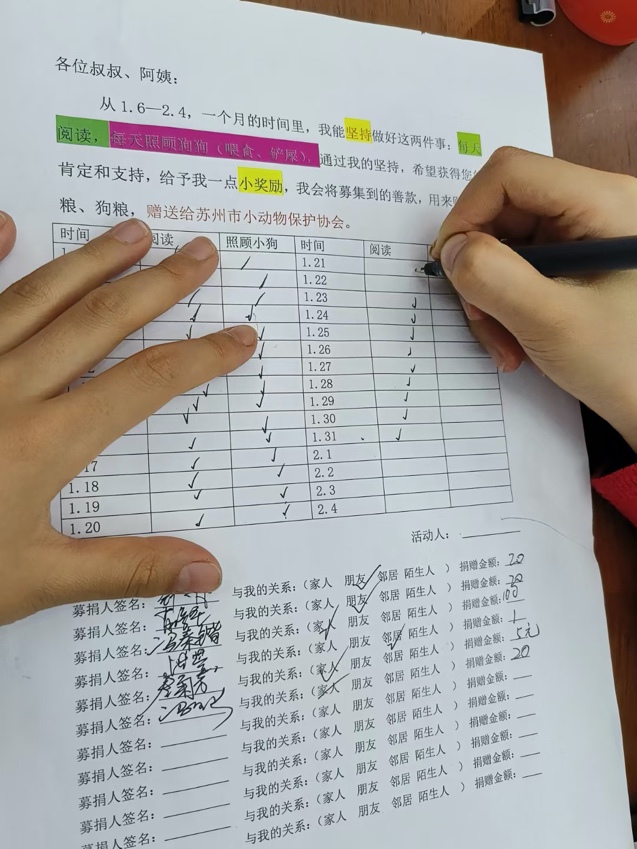 各位叔叔、阿姨：
从1.6—2.4，一个月的时间里，我能坚持做好这两件事：每天
阅读，每天照顾狗狗（喂食、铲屎），通过我的坚持，希望获得您
肯定和支持，给予我一点小奖励，我会将募集到的善款，用来
粮、狗粮，赠送给苏州市小动物保护协会。
时间 阅读 照顾小狗 时间 阅读
✓ 1.21
✓ 1.22
✓ ✓ 1.23 ✓
✓ ✓ 1.24 ✓
✓ 1.25 ✓
✓ 1.26 ✓
✓ 1.27 ✓
✓ ✓ 1.28 ✓
✓ ✓ 1.29 ✓
✓ 1.30 ✓
✓ ✓ 1.31 ✓
17 ✓ ✓ 2.1
1.18 ✓ ✓ 2.2
1.19 ✓ ✓ 2.3
1.20 ✓ ✓ 2.4
活动人：
募捐人签名： 与我的关系：（家人 朋友 邻居 陌生人 ） 捐赠金额：20
募捐人签名： 与我的关系：（家人 朋友 邻居 陌生人 ） 捐赠金额：20
募捐人签名： 与我的关系：（家人 朋友 邻居 陌生人 ） 捐赠金额：100
募捐人签名： 与我的关系：（家人 朋友 邻居 陌生人 ） 捐赠金额：1
募捐人签名： 与我的关系：（家人 朋友 邻居 陌生人 ） 捐赠金额：5元
募捐人签名： 与我的关系：（家人 朋友 邻居 陌生人 ） 捐赠金额：20
募捐人签名： 与我的关系：（家人 朋友 邻居 陌生人 ） 捐赠金额：
募捐人签名： 与我的关系：（家人 朋友 邻居 陌生人 ） 捐赠金额：
募捐人签名： 与我的关系：（家人 朋友 邻居 陌生人 ） 捐赠金额：
募捐人签名： 与我的关系：（家人 朋友 邻居 陌生人 ） 捐赠金额：